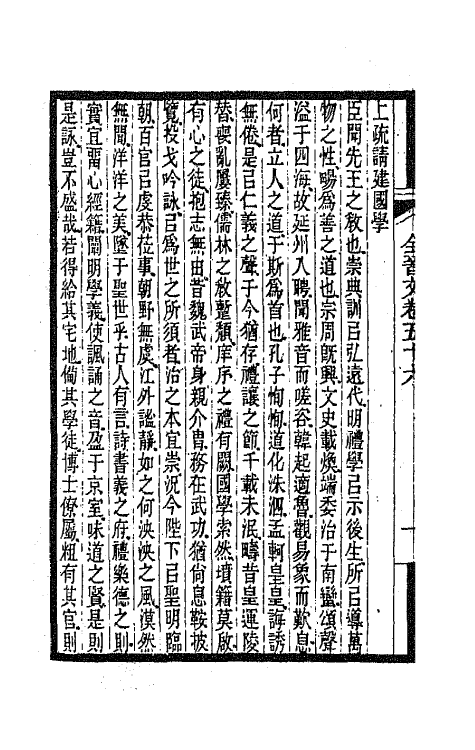 全晉文卷五十六
上疏請建國學
臣聞先王之敎也崇典訓㠯弘遠代明禮學㠯示後生所㠯導萬
物之性暢爲善之道也宗周旣興文史載煥端委治于南蠻頌聲
溢于四海故延州入聘聞雅音而嗟谷韓起適魯觀易象而歎息
何者立人之道于斯爲首也孔子恂恂道化洙泗孟軻皇皇誨誘
無倦是㠯仁義之聲于今猶存禮讓之節千載未泯疇昔皇運陵
替喪亂屢臻儒林之敎暫頽庠序之禮有闕國學索然墳籍莫啟
有心之徒抱志無由昔魏武帝身親介胄務在武功猶尙息鞍披
覽投戈吟詠㠯爲世之所須者治之本宜崇況今陛下㠯聖明臨
朝百官㠯虔恭莅事朝野無虞江外謐靜如之何泱泱之風漠然
無聞洋洋之美墜于聖世乎古人有言詩書義之府禮樂德之則
實宜畱心經籍闡明學義使諷誦之音盈于京室味道之賢是則
是詠豈不盛哉若得給其宅地備其學徒博士僚屬粗有其官則